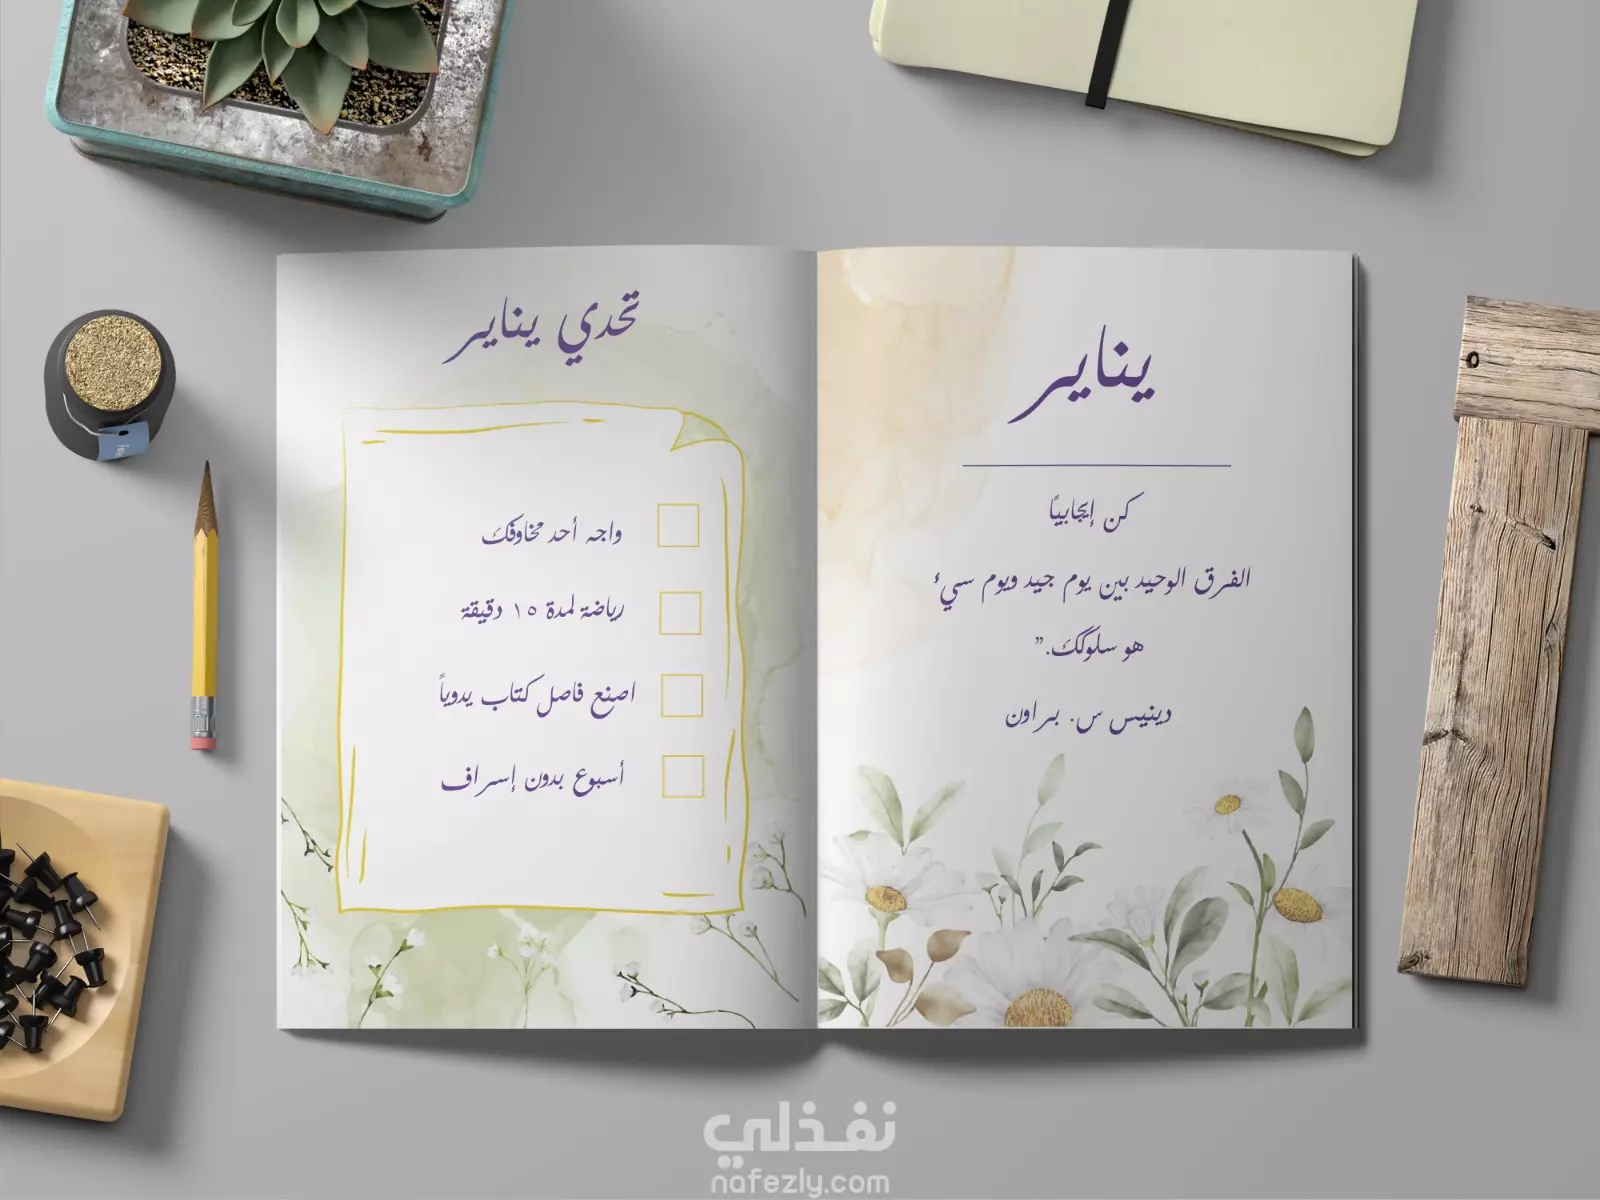 يناير
كن إيجابياً
الفرق الوحيد بين يوم جيد ويوم سيء
هو سلوكك.”
دينيس س. براون
تحدي يناير
واجه أحد مخاوفك
رياضة لمدة ١٥ دقيقة
اصنع فاصل كتاب يدوياً
أسبوع بدون إسراف
نفذلي
nafezly.com